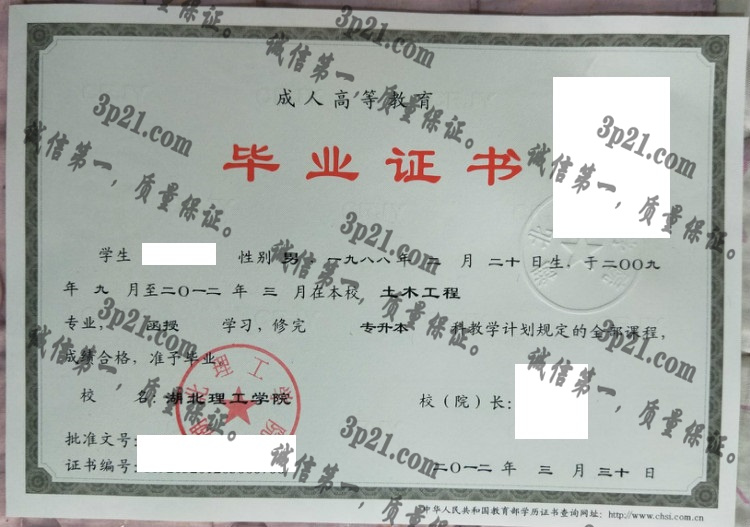 成人高等教育
毕业证书
学生 性别 男,一九八八年 二 月 二十日生,于二〇〇九
年 九 月至二〇一二 年 三 月在本校 土木工程
专业, 函授 学习,修完 专升本 科教学计划规定的全部课程,
成绩合格,准予毕业。
校 名:湖北理工学院
校(院)长:
批准文号:
证书编号:
二〇一二 年 三 月 三十日
中华人民共和国教育部学历证书查询网址: http://www.chsi.com.cn
湖北理工学院
3p21.com
诚信第一,质量保证。
3p21.com
诚信第一,质量保证。
3p21.com
诚信第一,质量保证。
3p21.com
诚信第一,质量保证。
3p21.com
诚信第一,质量保证。
3p21.com
诚信第一,质量保证。
3p21.com
诚信第一,质量保证。
3p21.com
诚信第一,质量保证。
3p21.com
诚信第一,质量保证。